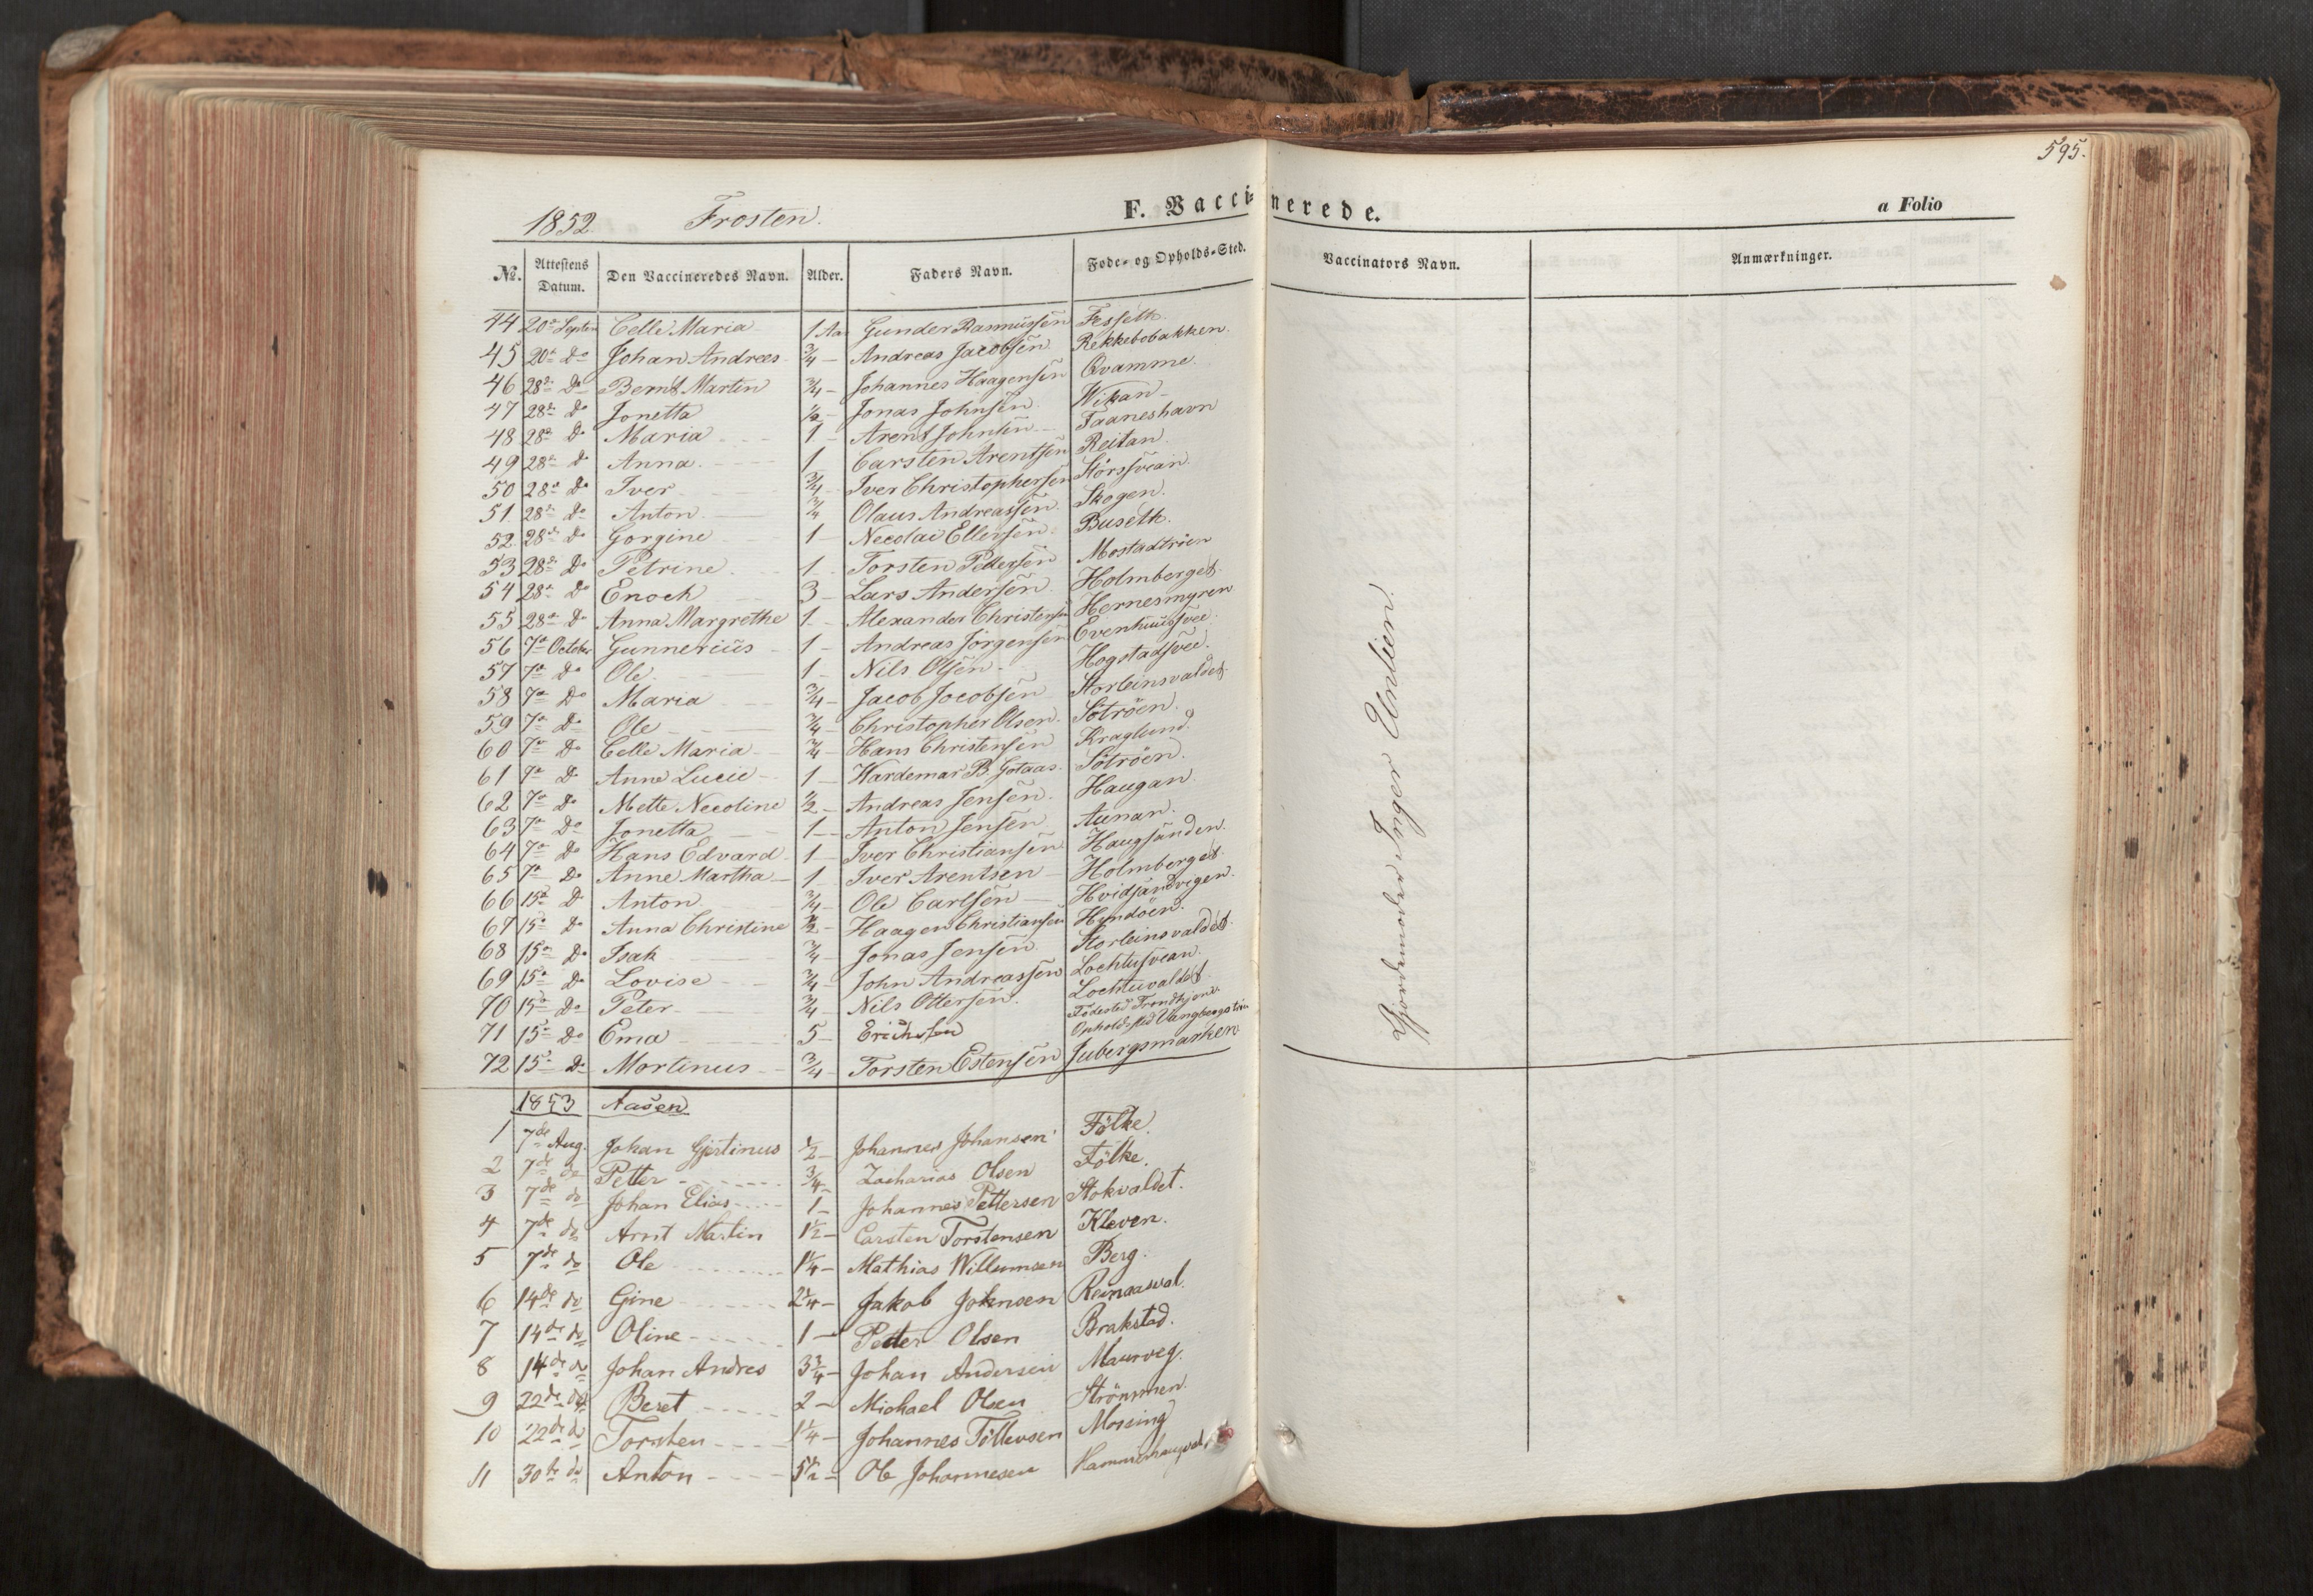 595.
1852. Frosten.
F. Vaccinerede.
a Folio
No. Attestens Datum. Den Vaccineredes Navn. Alder. Faders Navn. Føde- og Opholds-Sted. Vaccinators Navn. Anmærkninger.
44 20de Septem Celle Maria 1 Aar Gunder Rasmussen Fesseth.
45 20de Do Johan Andreas 3/4 Andreas Jacobsen Rekkebobakken.
46 28de Do Bernt Martin 3/4 Johannes Haagensen Qvamme
47 28de Do Jonetta 1/2 Jonas Johnsen Wikan
48 28de Do Maria 1 Arent Johnsen Faaneshavn
49 28de Do Anna 1 Carsten Arentsen Reitan.
50 28de Do Iver 3/4 Iver Christophersen Störssvean.
51 28de Do Anton 3/4 Olaus Andreassen Skogen.
52. 28de Do Gorgine 1 Necolai Ellersen Buseth.
53 28de Do Petrine 1 Torsten Pettersen Mostadtröen
54 28de Do Enoch 3 Lars Andersen Holmberget.
55 28de Do Anna Margrethe 1 Alexander Christensen Hernesmyren
56 7de October Gunnerius 1 Andreas Jörgensen Evenhuussvee.
57 7de Do Ole 1 Nils Olsen Hogstadsvee.
58 7de Do Maria 3/4 Jacob Jocobsen Storleinsvaldet.
59 7de Do Ole 3/4 Christopher Olsen. Sötröen.
60 7de Do Celle Maria 3/4 Hans Christensen Kraglund.
61 7de Do Anne Lucie 1 Wardemar B. Gotaas. Sötröen.
62 7de Do Mette Necoline 1/2 Andreas Jensen. Haugan
63 7de Do Jonetta 1 Anton Jensen Aunan.
64 7de Do Hans Edvard 1 Iver Christiansen Haugsanden.
65 7de Do Anne Martha 1 Iver Arentsen Holmberget.
66 15de Do Anton 3/4 Ole Carlsen Hvidsandvigen.
67 15de Do Anna Christine 1/2 Haagen Christiansen Hyndöen.
68 15de Do Isak 3/4 Jonas Jensen Storleinsvaldet.
69 15de Do Lovise 3/4 John Andreassen Lochtusvean.
70 15de Do Peter 3/4 Nils Ottersen. Lochtuvaldet
71 15de Do Ema 5 Erichsen Födested Trondhjem. Opholdssted Vangbergstrøen
72 15de Do Mortinus 3/4 Torsten Estensen Jubergsmarken
Gjordemoder Inger Undlien.
1853 Aasen
1 7de Aug. Johan Gjertinus 1/2 Johannes Johansen Fölke.
2 7de do Petter 3/4 Zacharias Olsen Fölke.
3 7de do Johan Elias 1 Johannes Pettersen Stokvaldet.
4 7de do Arnt Martin 1 1/2 Carsten Torstensen Kleven.
5 7de do Ole 1 1/4 Mathias Willumsen Berg.
6 14de do Gine 2 1/4 Jakob Johnsen Reinaasval.
7 14de do Oline 1 Petter Olsen Brakstad.
8 14de do Johan Andres 3 3/4 Johan Andersen Maurveg.
9 22de do Beret 2 Michael Olsen Strömmen.
10 22de do Torsten 1 1/4 Johannes Tollevsen Mossing
11 30te do Anton 5 1/2 Ole Johannesen Hammerhaugval.